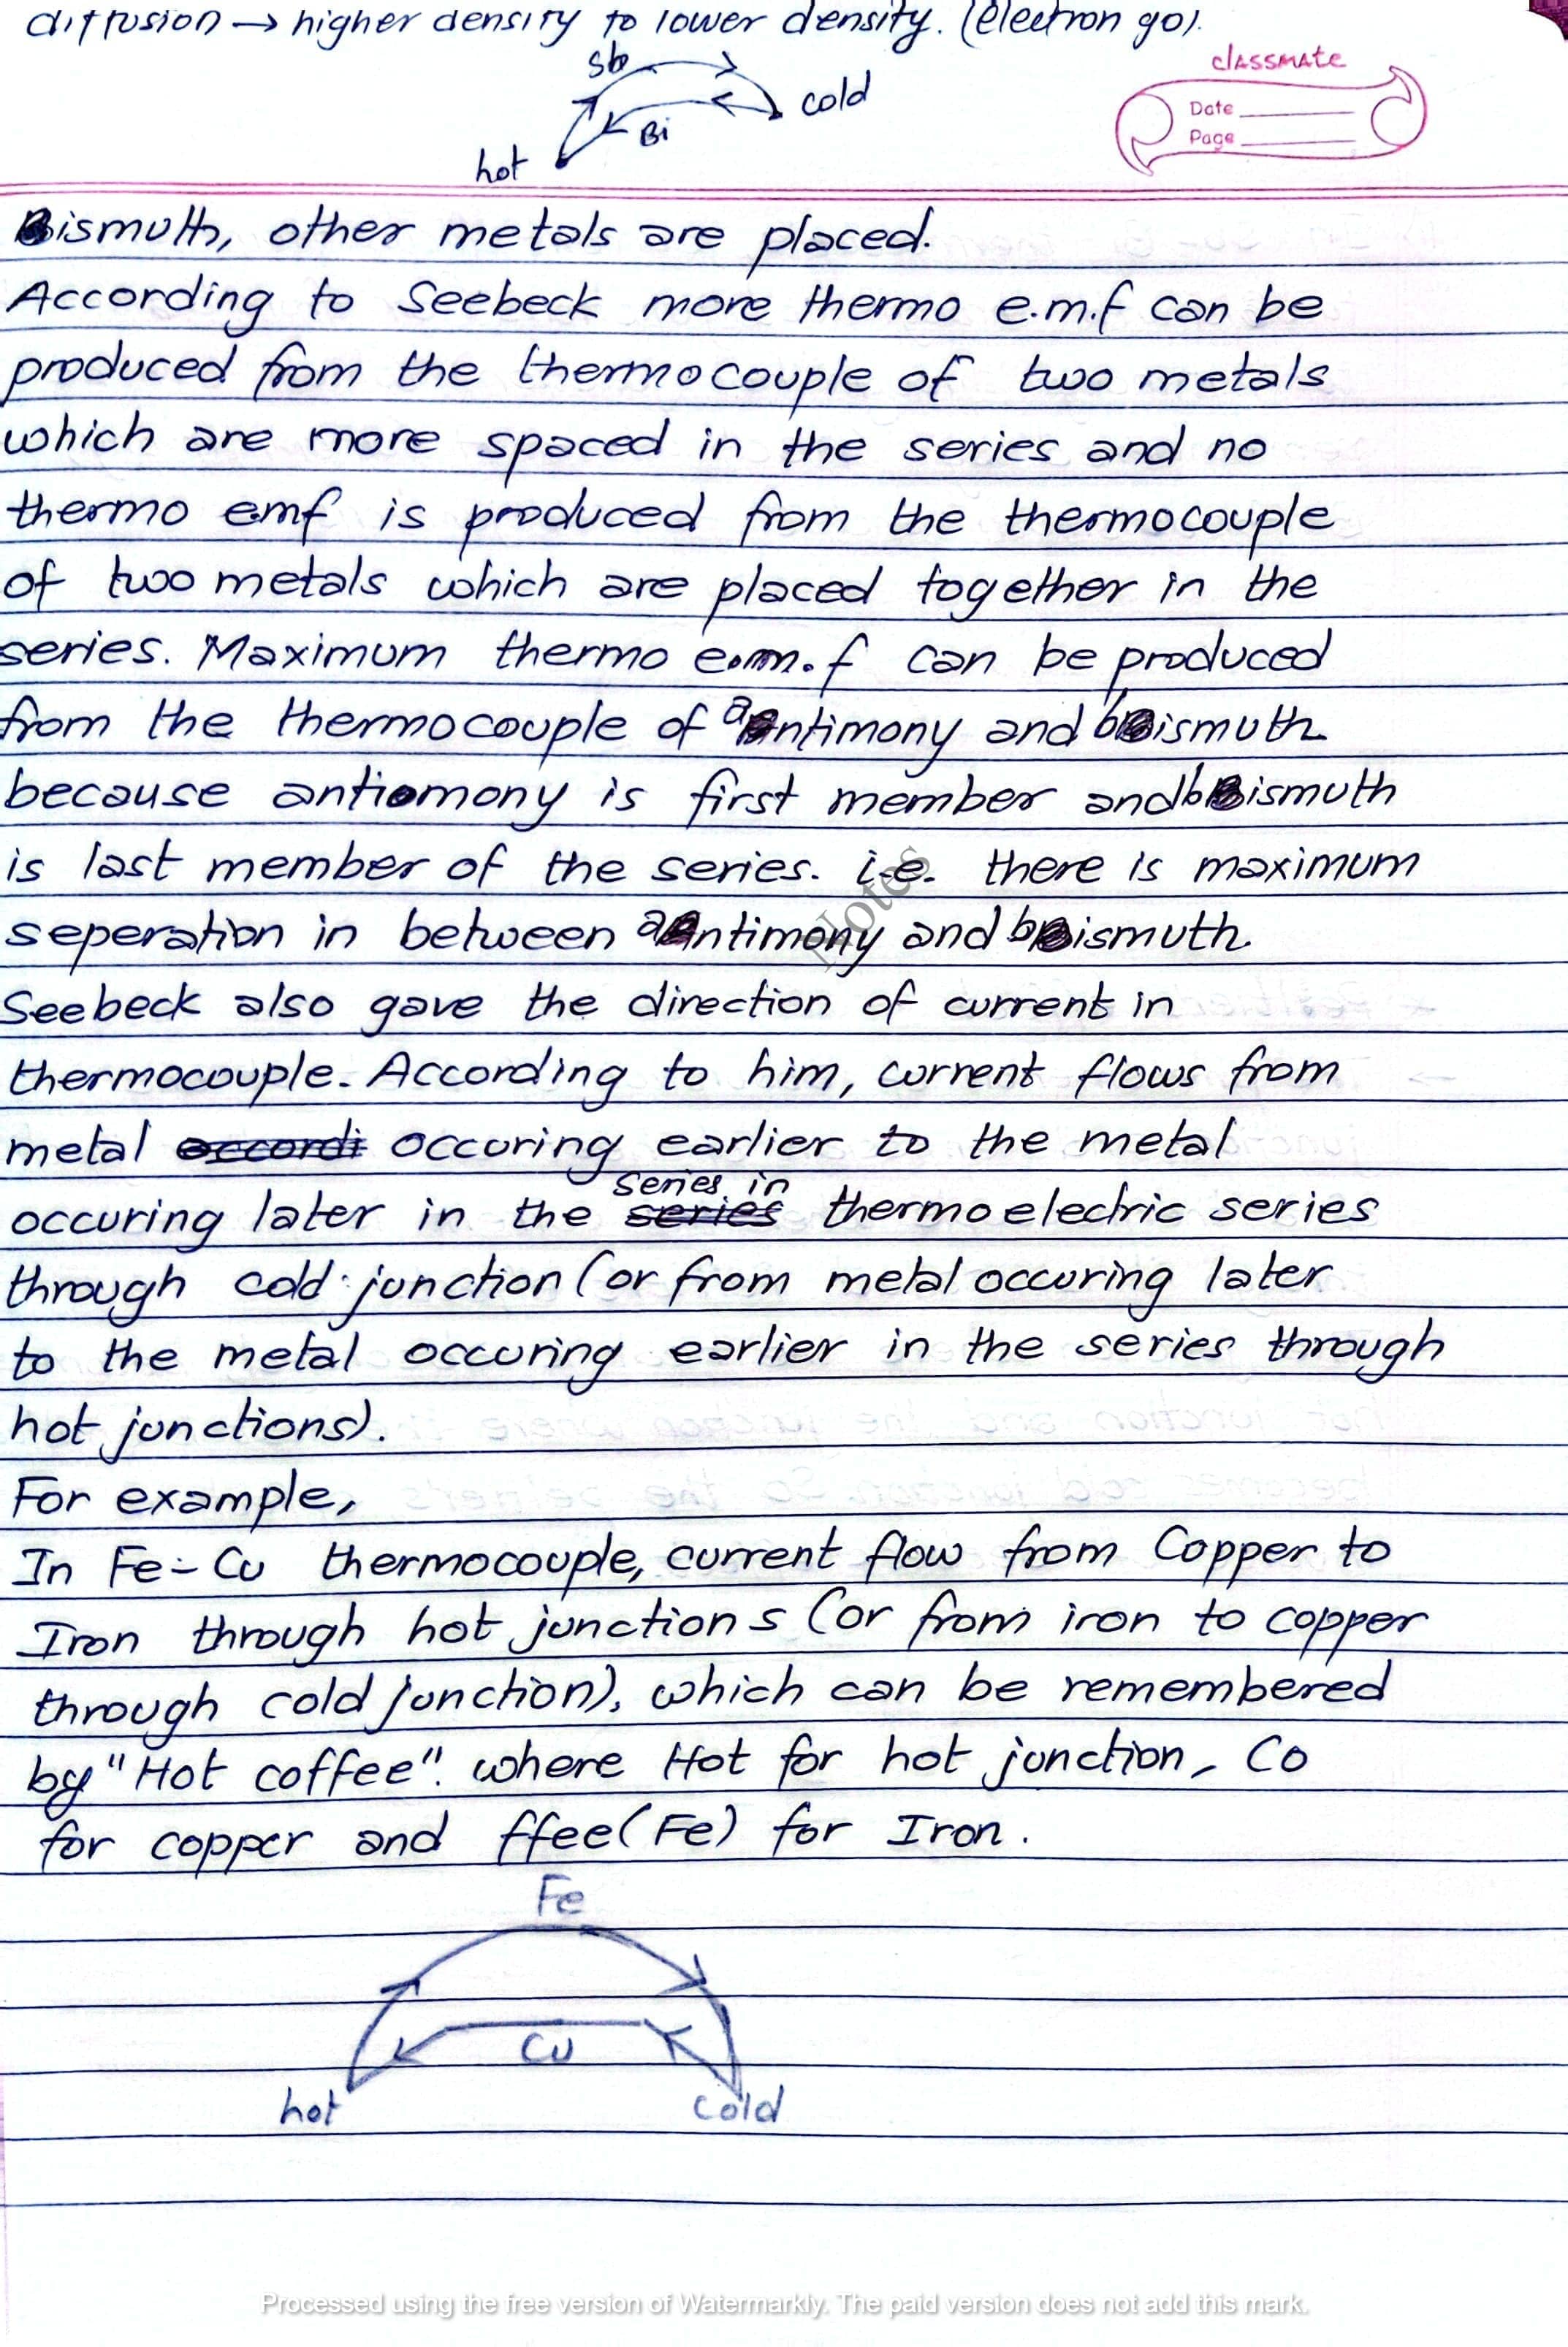 diffusion → higher density to lower density. (electron go).
Sb
cold
Bi
hot
classmate
Date
Page
Bismuth, other metals are placed.
According to Seebeck more thermo e.m.f can be
produced from the thermocouple of two metals
which are more spaced in the series and no
thermo emf is produced from the thermocouple
of two metals which are placed together in the
series. Maximum thermo e.m.f can be produced
from the thermocouple of antimony and bismuth
because antiomony is first member and bismuth
is last member of the series. i.e. there is maximum
seperation in between antimony and bismuth.
Seebeck also gave the direction of current in
thermocouple. According to him, current flows from
metal accordi occuring earlier to the metal
series in
occuring later in the series thermoelectric series
through cold junction (or from metal occuring later
to the metal occuring earlier in the series through
hot junctions).
For example,
In Fe-Cu thermocouple, current flow from Copper to
Iron through hot junctions (or from iron to copper
through cold junction), which can be remembered
by "Hot coffee". where Hot for hot junction, Co
for copper and ffee(Fe) for Iron.
Fe
Cu
hot
cold
Notes
Processed using the free version of Watermarkly. The paid version does not add this mark.